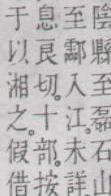 陰縣至磊石山
至酃入江。未詳
息良切。十部。按
于以湘之。假借